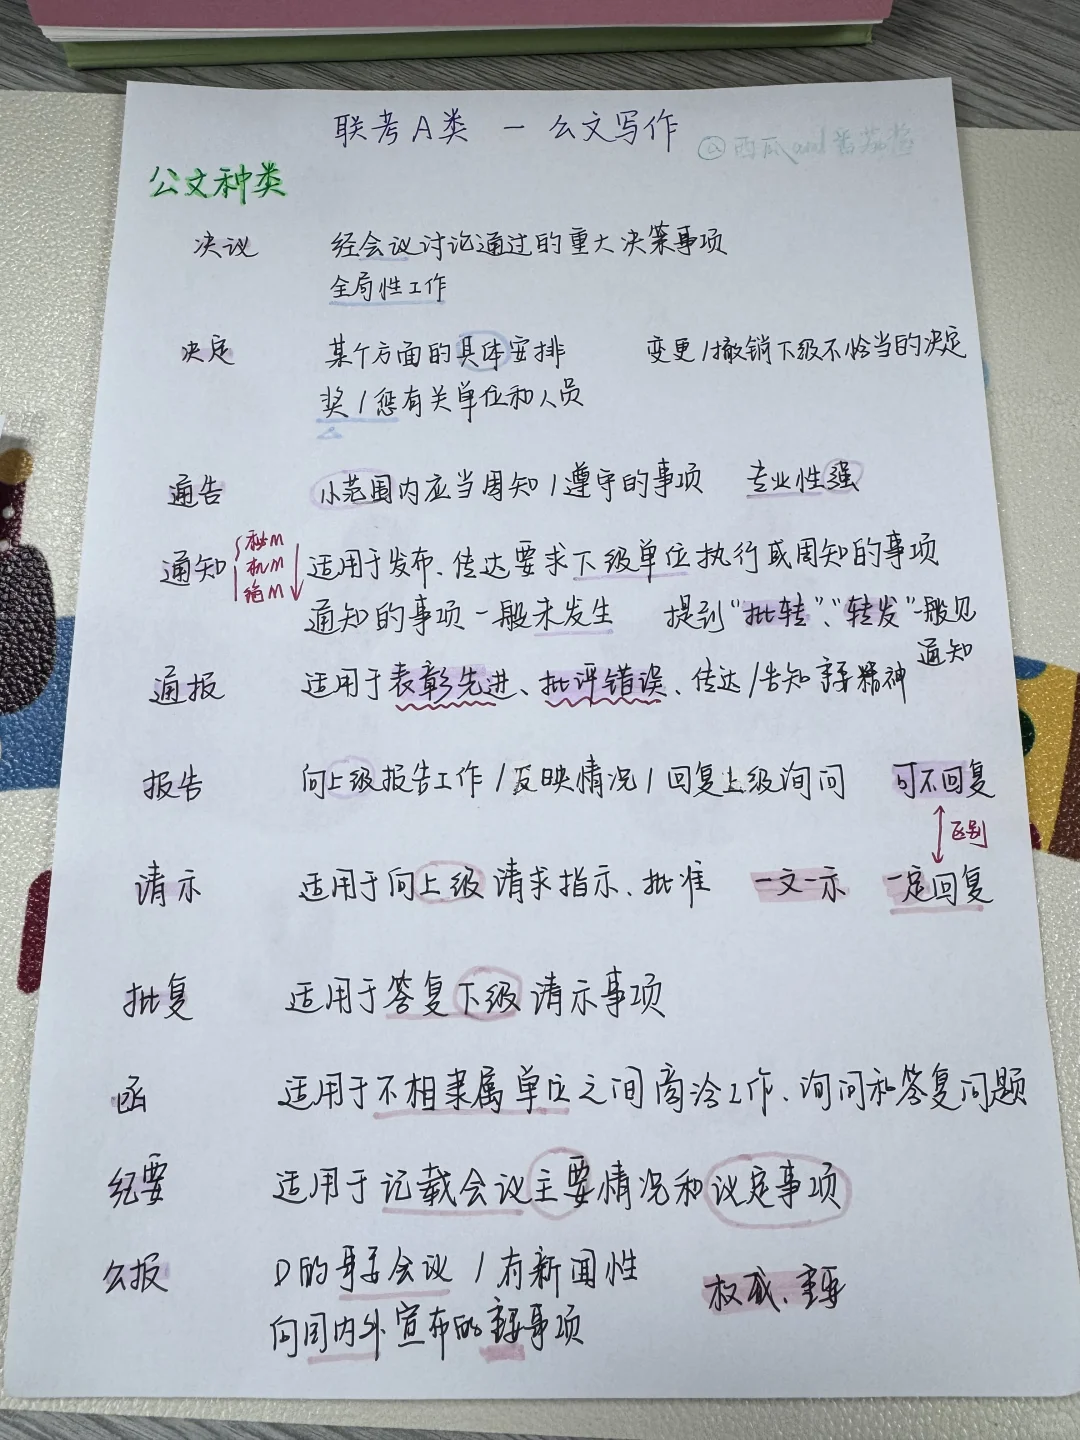 联考A类 — 公文写作
@西瓜and番茄酱
公文种类
决议 经会议讨论通过的重大决策事项
全局性工作
决定 某个方面的具体安排 变更/撤销下级不恰当的决定
奖/惩有关单位和人员
通告 小范围内应当周知/遵守的事项 专业性强
通知 秘M 机M 绝M 适用于发布、传达要求下级单位执行或周知的事项
通知的事项一般未发生 提到“批转”、“转发”一般见
通知
通报 适用于表彰先进、批评错误、传达/告知重要精神
报告 向上级报告工作/反映情况/回复上级询问 可不回复
区别
请示 适用于向上级请求指示、批准 一文一示 一定回复
批复 适用于答复下级请示事项
函 适用于不相隶属单位之间商洽工作、询问和答复问题
纪要 适用于记载会议主要情况和议定事项
公报 D的重要会议/有新闻性 权威、重要
向国内外宣布的重要事项